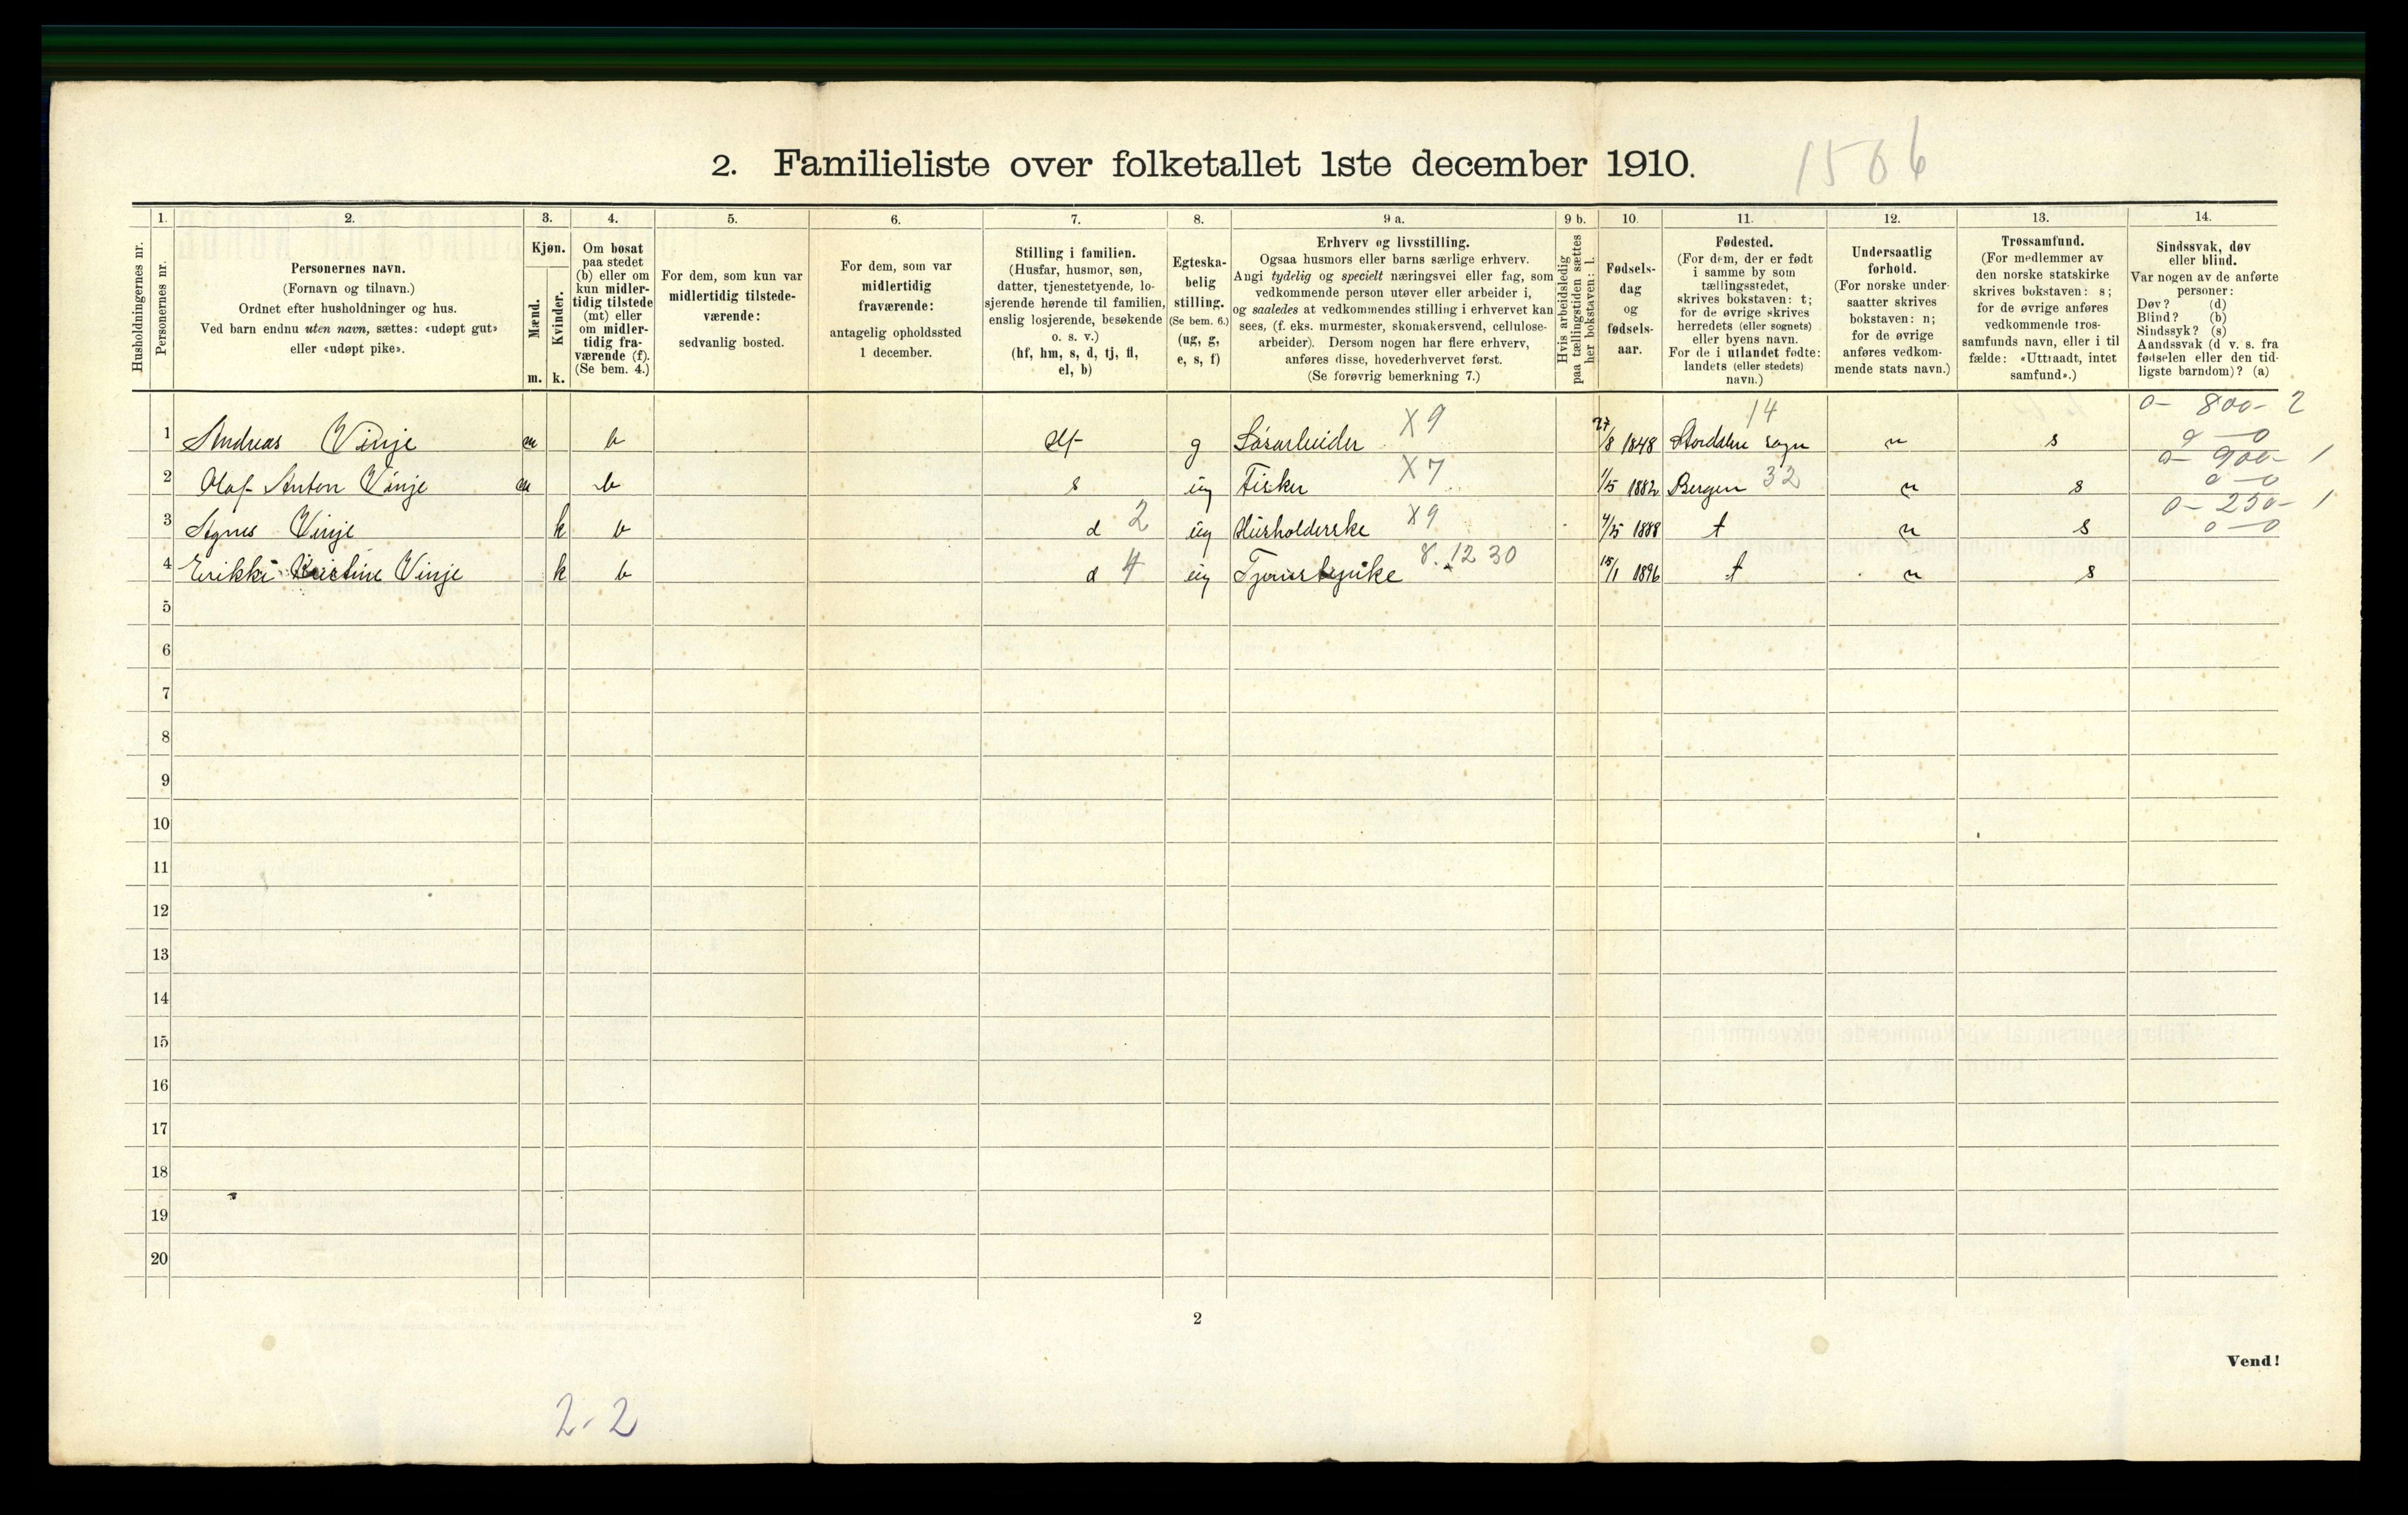 2. Familieliste over folketallet 1ste december 1910.
1506
1. 2. 3. 4. 5. 6. 7. 8. 9 a. 9 b. 10. 11. 12. 13. 14.
Husholdningernes nr.
Personernes nr.
Personernes navn.
(Fornavn og tilnavn.)
Ordnet efter husholdninger og hus.
Ved barn endnu uten navn, sættes: «udøpt gut»
eller «udøpt pike».
Kjøn.
Mænd.
Kvinder.
m. k.
Om bosat
paa stedet
(b) eller om
kun midler-
tidig tilstede
(mt) eller
om midler-
tidig fra-
værende (f).
(Se bem. 4.)
For dem, som kun var
midlertidig tilstede-
værende:
sedvanlig bosted.
For dem, som var
midlertidig
fraværende:
antagelig opholdssted
1 december.
Stilling i familien.
(Husfar, husmor, søn,
datter, tjenestetyende, lo-
sjerende hørende til familien,
enslig losjerende, besøkende
o. s. v.)
(hf, hm, s, d, tj, fl,
el, b)
Egteska-
belig
stilling.
(Se bem. 6.)
(ug, g,
e, s, f)
Erhverv og livsstilling.
Ogsaa husmors eller barns særlige erhverv.
Angi tydelig og specielt næringsvei eller fag, som
vedkommende person utøver eller arbeider i,
og saaledes at vedkommendes stilling i erhvervet kan
sees, (f. eks. murmester, skomakersvend, cellulose-
arbeider). Dersom nogen har flere erhverv,
anføres disse, hovederhvervet først.
(Se forøvrig bemerkning 7.)
Hvis arbeidsledig
paa tællingstiden sættes
her bokstaven: l.
Fødsels-
dag
og
fødsels-
aar.
Fødested.
(For dem, der er født
i samme by som
tællingsstedet,
skrives bokstaven: t;
for de øvrige skrives
herredets (eller sognets)
eller byens navn.
For de i utlandet fødte:
landets (eller stedets)
navn.)
Undersaatlig
forhold.
(For norske under-
saatter skrives
bokstaven: n;
for de øvrige
anføres vedkom-
mende stats navn.)
Trossamfund.
(For medlemmer av
den norske statskirke
skrives bokstaven: s;
for de øvrige anføres
vedkommende tros-
samfunds navn, eller i til-
fælde: «Uttraadt, intet
samfund».)
Sindssvak, døv
eller blind.
Var nogen av de anførte
personer:
Døv? (d)
Blind? (b)
Sindssyk? (s)
Aandssvak (d. v. s. fra
fødselen eller den tid-
ligste barndom)? (a)
14 0- 800- 2
1 Andreas Vinje m b hf g Løsarbeider X9 27/8 1848 Stordalen sogn n s 0-0
0- 900- 1
2 Olaf Anton Vinje m b s ug Fisker X7 1/5 1882 Bergen 32 n s 0-0
0- 250- 1
3 Agnes Vinje k b d 2 ug Husholderske X9 4/5 1888 t n s 0-0
4 Erikke Kristine Vinje k b d 4 ug Tjenestepike 8.12 30 15/1 1896 t n s
5
6
7
8
9
10
11
12
13
14
15
16
17
18
19
20
2
Vend!
2-2